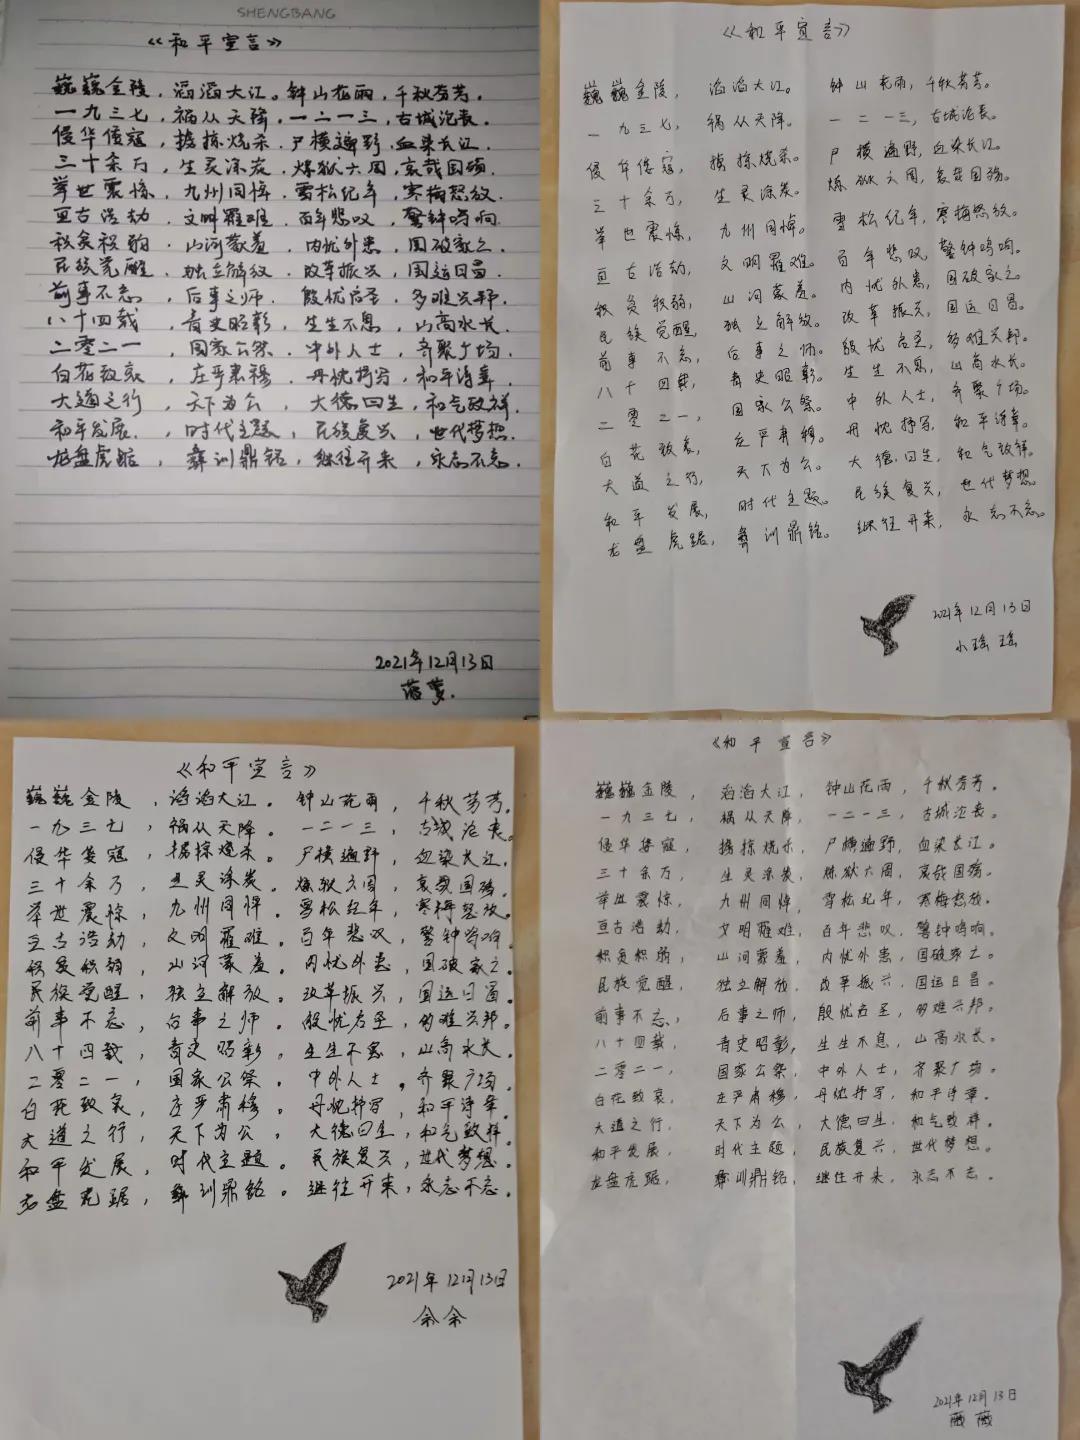 SHENGBANG
《和平宣言》
巍巍金陵，滔滔大江。钟山花雨，千秋芬芳。
一九三七，祸从天降，一二一三，古城沦丧。
侵华倭寇，掳掠烧杀。尸横遍野，血染长江。
三十余万，生灵涂炭。炼狱六周，哀哉国殇。
举世震惊，九州同悼。雪松纪年，寒梅怒放。
亘古浩劫，文明罹难。百年悲叹，警钟鸣响。
积贫积弱，山河蒙羞。内忧外患，国破家亡。
民族觉醒，独立解放。改革振兴，国运日昌。
前事不忘，后事之师。殷忧启圣，多难兴邦。
八十四载，青史昭彰，生生不息，山高水长。
二零二一，国家公祭。中外人士，齐聚广场。
白花致哀，庄严肃穆。丹忱抒写，和平诗章。
大道之行，天下为公，大德曰生，和气致祥。
和平发展，时代主题，民族复兴，世代梦想。
龙盘虎踞，彝训鼎铭，继往开来，永志不忘。
2021年12月13日
《和平宣言》
巍巍金陵，滔滔大江。钟山花雨，千秋芬芳。
一九三七，祸从天降。一二一三，古城沦丧。
侵华倭寇，掳掠烧杀。尸横遍野，血染长江。
三十余万，生灵涂炭。炼狱六周，哀哉国殇。
举世震惊，九州同悼。雪松纪年，寒梅怒放。
亘古浩劫，文明罹难。百年悲叹，警钟鸣响。
积贫积弱，山河蒙羞。内忧外患，国破家亡。
民族觉醒，独立解放。改革振兴，国运日昌。
前事不忘，后事之师。殷忧启圣，多难兴邦。
八十四载，青史昭彰。生生不息，山高水长。
二零二一，国家公祭。中外人士，齐聚广场。
白花致哀，庄严肃穆。丹忱抒写，和平诗章。
大道之行，天下为公。大德曰生，和气致祥。
和平发展，时代主题。民族复兴，世代梦想。
龙盘虎踞，彝训鼎铭。继往开来，永志不忘。
2021年12月13日
小瑶瑶
《和平宣言》
巍巍金陵，滔滔大江。钟山花雨，千秋芬芳。
一九三七，祸从天降。一二一三，古城沦丧。
侵华倭寇，掳掠烧杀。尸横遍野，血染长江。
三十余万，生灵涂炭。炼狱六周，哀哉国殇。
举世震惊，九州同悼。雪松纪年，寒梅怒放。
亘古浩劫，文明罹难。百年悲叹，警钟鸣响。
积贫积弱，山河蒙羞。内忧外患，国破家亡。
民族觉醒，独立解放。改革振兴，国运日昌。
前事不忘，后事之师。殷忧启圣，多难兴邦。
八十四载，青史昭彰。生生不息，山高水长。
二零二一，国家公祭。中外人士。齐聚广场。
白花致哀，庄严肃穆。丹忱抒写，和平诗章。
大道之行，天下为公。大德曰生，和气致祥。
和平发展，时代主题。民族复兴，世代梦想。
龙盘虎踞，彝训鼎铭。继往开来，永志不忘。
2021年12月13日
余余
《和平宣言》
巍巍金陵，滔滔大江，钟山花雨，千秋芬芳。
一九三七，祸从天降，一二一三，古城沦丧。
侵华倭寇，掳掠烧杀，尸横遍野，血染长江。
三十余万，生灵涂炭，炼狱六周，哀哉国殇。
举世震惊，九州同悼，雪松纪年，寒梅怒放。
亘古浩劫，文明罹难，百年悲叹，警钟鸣响。
积贫积弱，山河蒙羞，内忧外患，国破家亡。
民族觉醒，独立解放，改革振兴，国运日昌。
前事不忘，后事之师，殷忧启圣，多难兴邦。
八十四载，青史昭彰，生生不息，山高水长。
二零二一，国家公祭，中外人士，齐聚广场。
白花致哀，庄严肃穆，丹忱抒写，和平诗章。
大道之行，天下为公，大德曰生，和气致祥。
和平发展，时代主题，民族复兴，世代梦想。
龙盘虎踞，彝训鼎铭，继往开来，永志不忘。
2021年12月13日
薇薇